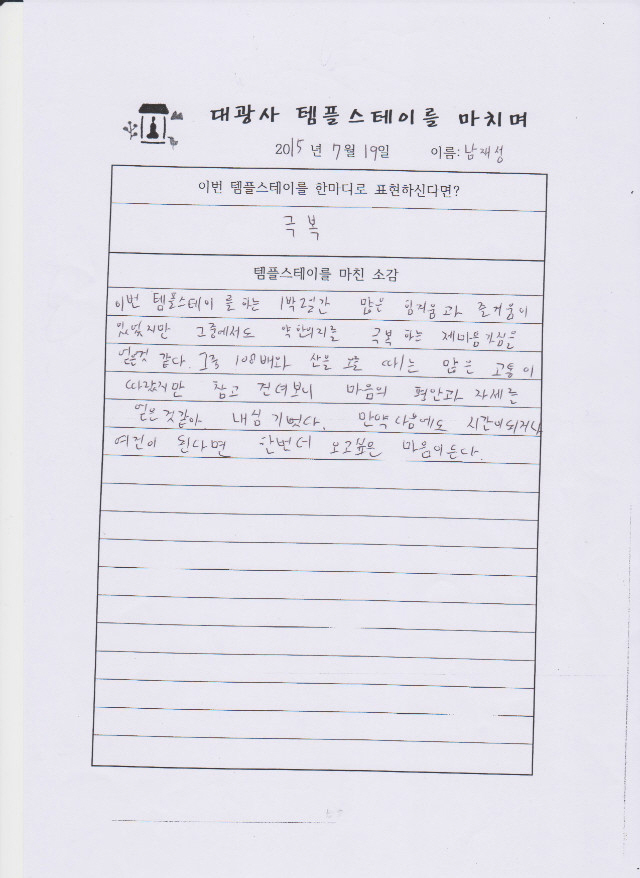 대광사 템플스테이를 마치며
2015 년 7월 19일 이름: 남재성
이번 템플스테이를 한마디로 표현하신다면?
극복
템플스테이를 마친 소감
이번 템플스테이를 하는 1박2일간 많은 힘겨움과 즐거움이
있었지만 그중에서도 약한의지를 극복하는
얻은것 같다. 그중 108배와 산을 오를 때는 많은 고통이
따랐지만 참고 견뎌보니 마음의 평안과 자세를
얻은것같아 내심 기뻤다. 만약 다음에도 시간이되거나
여건이 된다면 한번더 오고싶은 마음이든다.